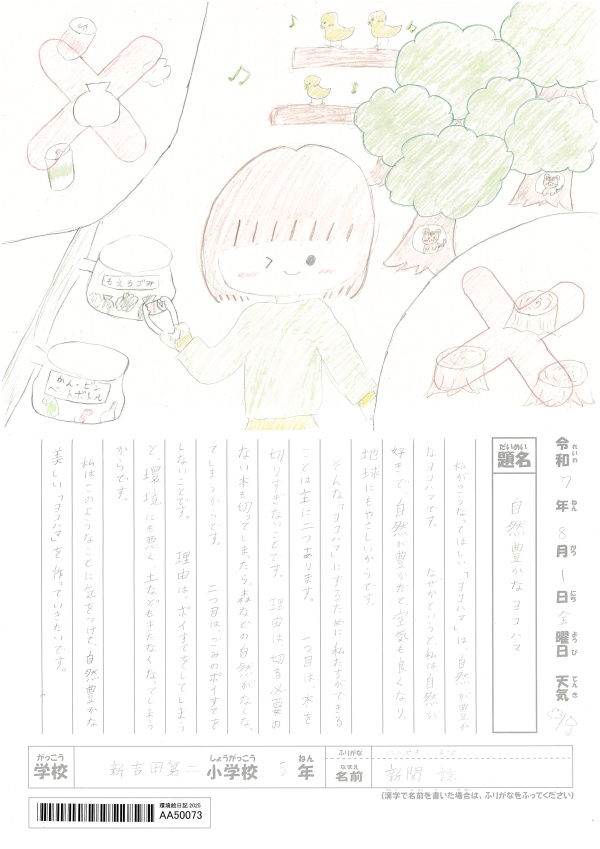 もえるごみ
かん・ビン
ペットボトル
令和7年8月1日金曜日 天気
れいわ ねん がつ にち ようび てんき
題名 自然豊かなヨコハマ
だいめい
私がこうなってほしい「ヨコハマ」は、自然が豊か
なヨコハマです。 なぜかというと私は自然が
好きで、自然が豊かだと空気も良くなり、
地球にもやさしいからです。
そんな「ヨコハマ」にするために私たちができる
ことは主に二つあります。 一つ目は、木を
切りすぎないことです。 理由は切る必要の
ない木も切ってしまったら森などの自然がなくな
てしまうからです。 二つ目は、ごみのポイすてを
しないことです。 理由は、ポイすてをしてしまう
と、環境にも悪く、土などもきたなくなってしまう
からです。
私はこのようなことに気をつけて、自然豊かな
美しい「ヨコハマ」を作っていきたいです。
がっこう しょうがっこう ねん ふりがな
学校 新吉田第二 小学校 5年 名前 新開 諒
なまえ
(漢字で名前を書いた場合は、ふりがなをふってください)
環境絵日記 2025
AA50073